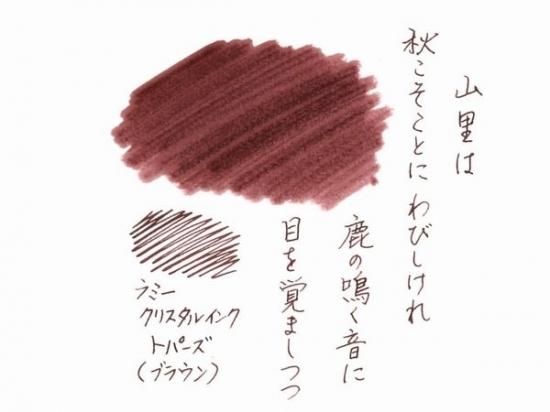 山里は
秋こそことにわびしけれ
鹿の鳴く音に
目を覚ましつつ
ラミー
クリスタルインク
トパーズ
(ブラウン)